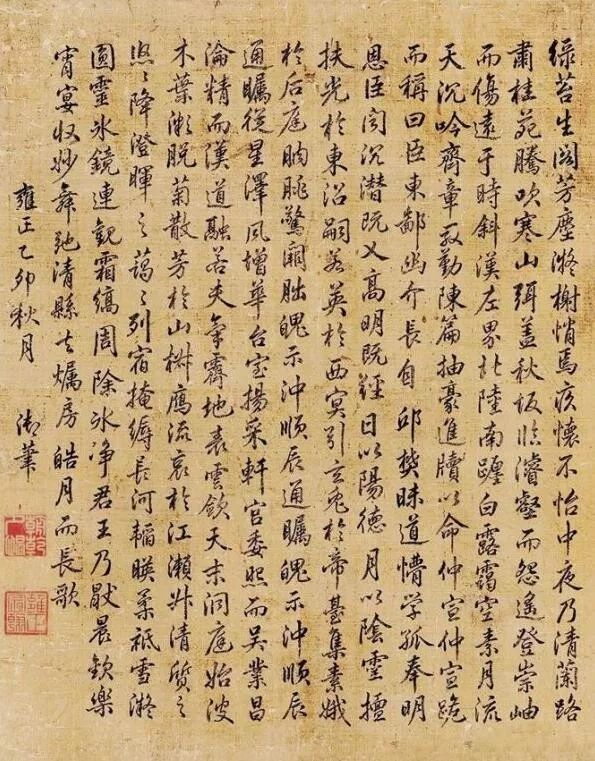 绿苔生阁芳塵凝榭悄焉疚懷不怡中夜乃清蘭路
肅桂苑騰吹寒山弭盖秋坂临濬壑而怨遙登崇岫
而傷遠于時斜漢左界北陸南躔白露靄空素月流
天沉吟齊章殷勤陳篇抽豪進牘以命仲宣仲宣跪
而稱曰臣東鄙幽介長自邱樊昧道懵學孤奉明
恩臣闻沉潜既义高明既經日以陽德月以陰靈擅
扶光於東沼嗣若英於西冥引玄兔於帝臺集素娥
於后庭朒脁驚闕朏魄示沖順辰通矚魄示沖順辰
通矚從星澤風增華台室揚采軒宮委照而吴業昌
淪精而漢道融若夫氣霽地表雲歛天末洞庭始波
木葉漸脱菊散芳於山椒鴈流哀於江瀬升清質之
悠々降澄暉之藹々列宿掩縟長河韜暎柔祇雪凝
圓靈氷鏡連觀霜縞周除氷净君王乃猒晨歡樂
宵宴收妙舞弛清縣去燭房皓月而長歌
雍正乙卯秋月 御筆